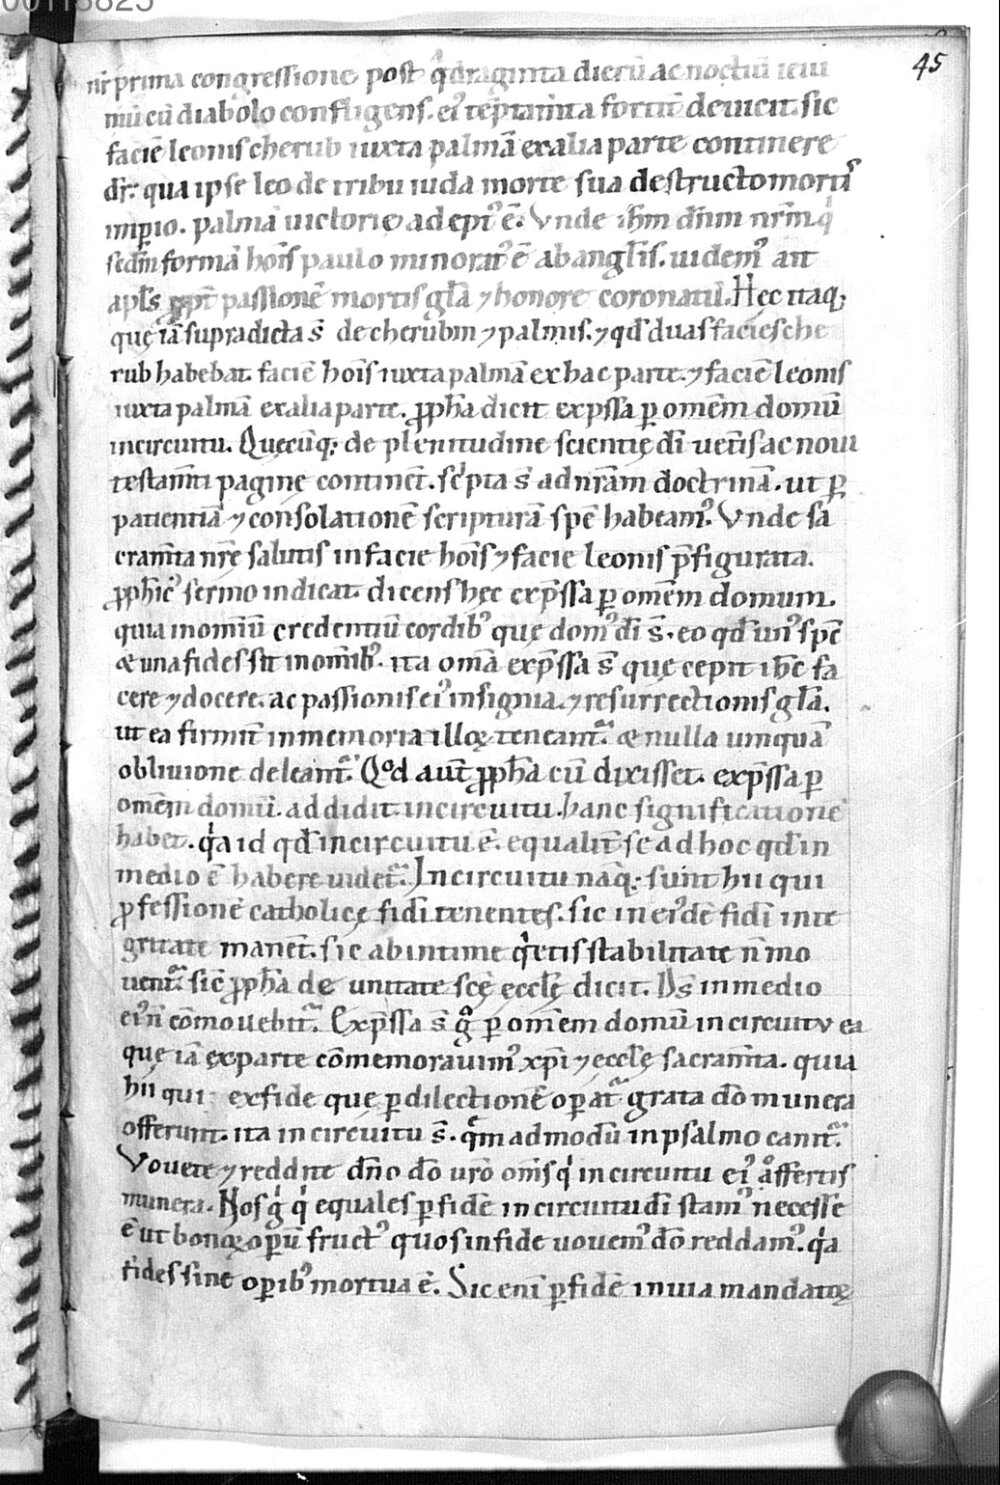 00113825
45
nr̄ prima congressione post q̍draginta dierū ac noctiū ieiu
niū cū diabolo confligens. eiꝰ tēptam̄ta fortit̄ deuicit. sic
faciē leonis cherub iuxta palmā ex alia parte continere
dr̄. qua ipse leo de tribu iuda morte sua destructo mortiꝰ
imꝑio. palmā uictorię adeptꝰ ē. Vnde ih̄m dn̄m nrm̄ q̍
sedm̄ formā hoīs paulo minoratꝰ ē ab angl̄is. uidemꝰ ait
apl̄s ꝓpt̄ passionē mortis gl̄a ⁊ honore coronatū. Hęc itaq;
quę iā supradicta s̄ de cherubin ⁊ palmis. ⁊ qd̄ duas facies che
rub habebat. faciē hoīs iuxta palmā ex hac parte. ⁊ faciē leonis
iuxta palmā ex alia parte. ꝓph̄a dicit exp̄ssa ꝑ omēm domū
incircuitu. Quęcūq; de plenitudine scientię dī uet̄is ac noui
testam̄ti paginę continet̄. sc̍pta s̄ ad nr̄am doctrinā. ut ꝑ
patientiā ⁊ consolationē scripturā spē habeamꝰ. Vnde sa
cram̄ta nr̄ę salutis in facie hoīs ⁊ facie leonis p̄figurata.
ꝓph̄icꝰ sermo indicat. dicens hęc exp̄ssa ꝑ omēm domum.
quia in omniū credentiū cordibꝰ quę domꝰ dī s̄. eo qd̄ unꝰ spē
æ una fides sit in omībꝰ. ita omā exp̄ssa s̄ quę cepit ih̄c fa
cere ⁊ docere. ac passionis eiꝰ insignia. ⁊ resurrectionis gl̄a.
ut ea firmit̄ in memoria illoꝝ teneant̄. æ nulla umquā
obliuione deleant̄. Qod aut̄ ꝓph̄a cū dixisset. exp̄ssa ꝑ
omēm domū. addidit. incircuitu. hanc significationē
habet. q̍a id qd̄ incircuitu ē. equalit̄ se ad hoc qd̄ in
medio ē habere uidet̄. Incircuitu nāq; sunt hii qui
ꝓfessionē catholicę fidī tenentes. sic in eiꝰdē fidī inte
gritate manet̄. sic ab intime q̍etis stabilitate n̄ mo
uent̄. sic̄ ꝓph̄a de unitate scę̄ ęccl̄ę dicit. Ds̄ in medio
eiꝰ n̄ cōmouebit̄. Exp̄ssa s̄ g̊ ꝑ omēm domū incircuitu ea
quę iā ex parte cōmemorauimꝰ xp̄i ⁊ ęccl̄ę sacram̄ta. quia
hii qui ex fide quę ꝑ dilectionē oꝑat̄ grata dō munera
offerunt. ita incircuitu s̄. q̄madmodū in psalmo canit̄.
Vouete ⁊ reddite dn̄o dō uro om̄s q̍ incircuitu eiꝰ affertis
munera. Nos g̍ q̍ equales ꝑ fidē incircuitu dī stamꝰ necesse
ē ut bonoꝝ oꝑū fructꝰ quos in fide uouemꝰ dō reddamꝰ. q̍a
fides sine oꝑibꝰ mortua ē. Sic enī ꝑ fidē in uia mandatoꝝ